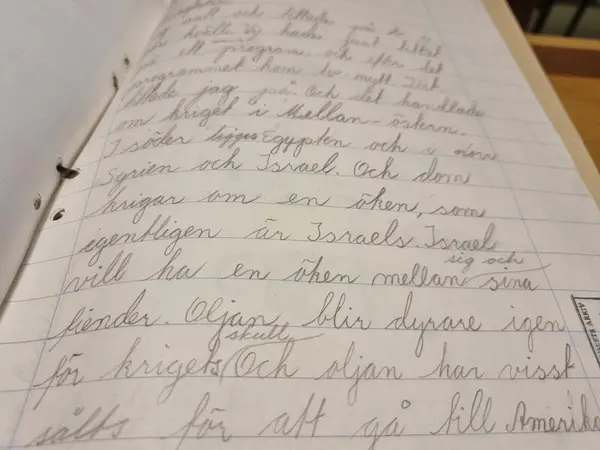 satt och tittade på
kväll. Vi hade just tittat
på ett program och efter det
programmet kom tv-nytt. Det
tittade jag på. Och det handlade
om kriget i Mellan-östern.
I söder ligger Egypten och i norr
Syrien och Israel. Och dom
krigar om en öken, som
igentligen är Israels. Israel
vill ha en öken mellan sig och sina
fiender. Oljan blir dyrare igen
för krigets skull. Och oljan har visst
sålts för att gå till Amerika
ARKIV